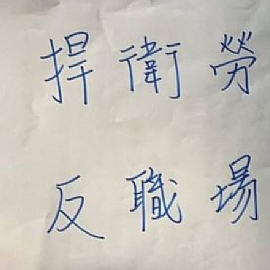 捍衛勞
反職場